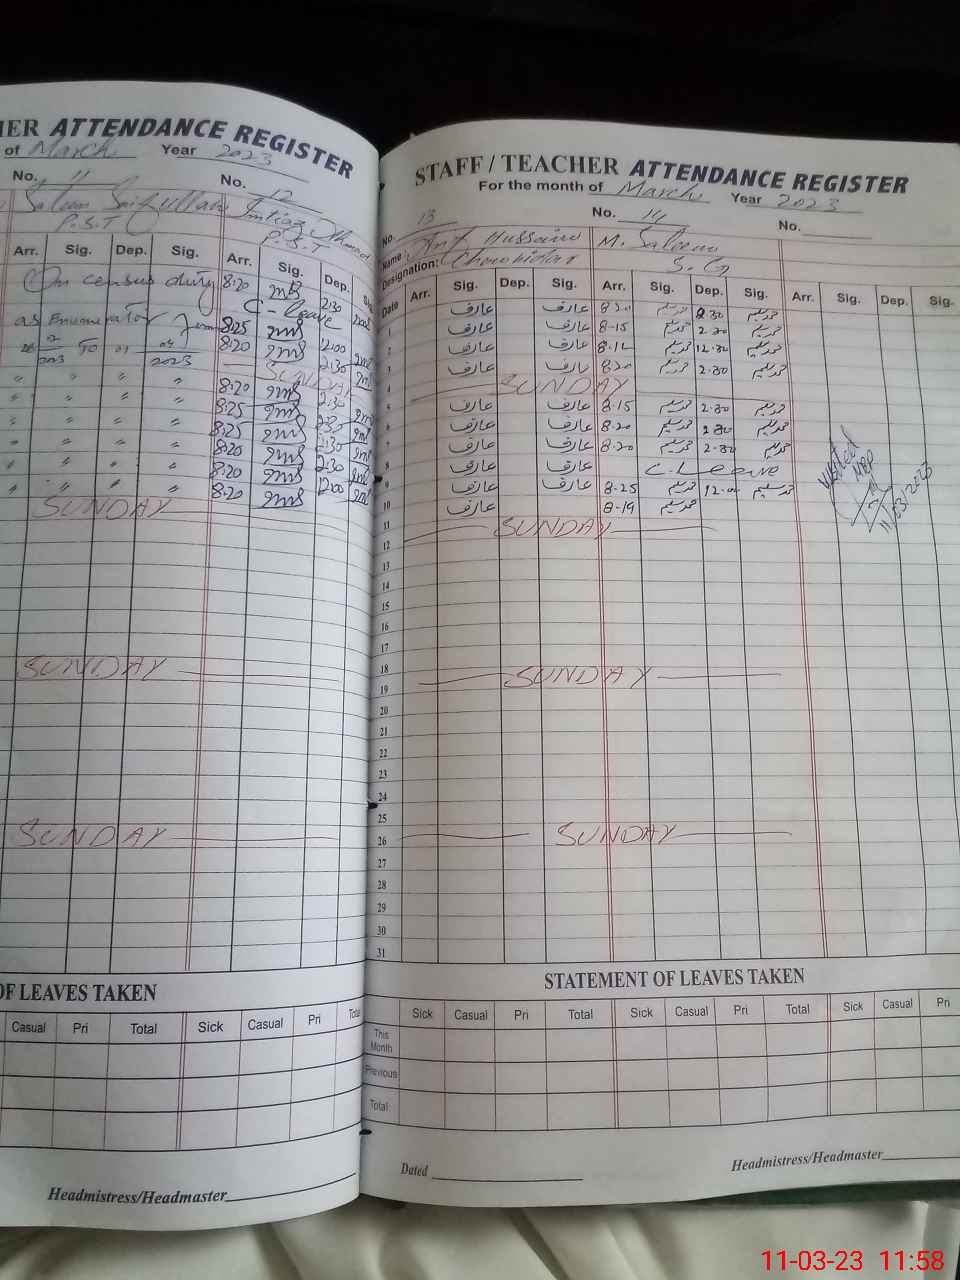 HER ATTENDANCE REGISTER
of March Year 2023
No. 11 No. 12
Saleem Saifullah Imtiaz Ahmad
P.S.T P.S.T
Arr. Sig. Dep. Sig. Arr. Sig. Dep.
On census duty 8:20 2:30
C-leave
as Enumerator from 8:25 12:00
2023 to 01 04 2023 8:20 2:30
SUNDAY
" " " " 8:20 2:30
" " " " 8:25 2:30
" " " " 8:25 2:30
" " " " 8:20 2:30
" " " " 8:20 12:00
" " " " 8:20
SUNDAY
SUNDAY
SUNDAY
OF LEAVES TAKEN
Casual Pri Total Sick Casual Pri Total
Headmistress/Headmaster
STAFF / TEACHER ATTENDANCE REGISTER
For the month of March Year 2023
No. 13 No. 14 No.
Name Arif Hussain M. Saleem
Designation: Chowkidar S.G
Date Arr. Sig. Dep. Sig. Arr. Sig. Dep. Sig. Arr. Sig. Dep. Sig.
1 عارف عارف 8-20 محمد سلیم 2.30 محمد سلیم
2 عارف عارف 8-15 محمد سلیم 2.30 محمد سلیم
3 عارف عارف محمد سلیم 12.30 محمد سلیم
4 عارف عارف 8-20 محمد سلیم 2.30 محمد سلیم
5 SUNDAY
6 عارف عارف 8-15 محمد سلیم 2.30 محمد سلیم
7 عارف عارف 8-20 محمد سلیم 2.30 محمد سلیم
8 عارف عارف 8-20 محمد سلیم 2.30 محمد سلیم
9 عارف عارف C. Leave
10 عارف عارف 8-25 محمد سلیم 12.00 محمد سلیم
11 عارف 8-19 محمد سلیم
Visited
11/03/2023
12 SUNDAY
13
14
15
16
17
18
19 SUNDAY
20
21
22
23
24
25
26 SUNDAY
27
28
29
30
31
STATEMENT OF LEAVES TAKEN
Sick Casual Pri Total Sick Casual Pri Total Sick Casual Pri
This Month
Previous
Total
Dated
Headmistress/Headmaster
11-03-23 11:58